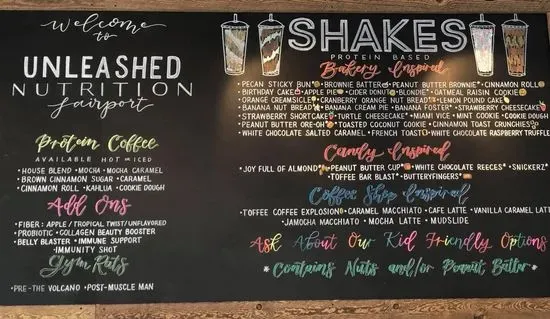 Welcome
to
UNLEASHED
NUTRITION
fairport
Protein Coffee
AVAILABLE HOT OR ICED
• HOUSE BLEND • MOCHA • MOCHA CARAMEL
• BROWN CINNAMON SUGAR • CARAMEL
• CINNAMON ROLL • KAHLUA • COOKIE DOUGH
Add Ons
• FIBER: APPLE / TROPICAL TWIST/UNFLAVORED
• PROBIOTIC • COLLAGEN BEAUTY BOOSTER
• BELLY BLASTER • IMMUNE SUPPORT
• IMMUNITY SHOT
Gym Rats
• PRE-THE VOLCANO • POST-MUSCLE MAN
SHAKES
PROTEIN BASED
Bakery Inspired
• PECAN STICKY BUN • BROWNIE BATTER • PEANUT BUTTER BROWNIE* • CINNAMON ROLL
BIRTHDAY CAKE • APPLE PIE • CIDER DONUT • BLONDIE* • OATMEAL RAISIN COOKIE
ORANGE CREAMSICLE • CRANBERRY ORANGE NUT BREAD • LEMON POUND CAKE
BANANA NUT BREAD* • BANANA CREAM PIE • BANANA FOSTER* • STRAWBERRY CHEESECAKE
• STRAWBERRY SHORTCAKE • TURTLE CHEESECAKE* • MIAMI VICE • MINT COOKIE • COOKIE DOUGH
• PEANUT BUTTER ORE-OH* • TOASTED COCONUT COOKIE • CINNAMON TOAST CRUNCHIES
• WHITE CHOCOLATE SALTED CARAMEL • FRENCH TOAST • WHITE CHOCOLATE RASPBERRY TRUFFLE
Candy Inspired
• JOY FULL OF ALMOND* • PEANUT BUTTER CUP* • WHITE CHOCOLATE REECES* • SNICKERZ*
• TOFFEE BAR BLAST* • BUTTERYFINGERS*
Coffee Shop Inspired
TOFFEE COFFEE EXPLOSION • CARAMEL MACCHIATO • CAFE LATTE • VANILLA CARAMEL LATT
• JAMOCHA MACCHIATO • MOCHA LATTE • MUDSLIDE
Ask About Our Kid Friendly Options
*Contains Nuts and/or Peanut Butter*